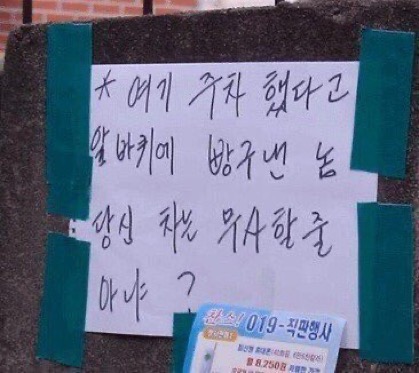 * 여기 주차 했다고
앞바퀴에 빵구낸 놈
당신 차는 무사할줄
아냐?
찬스! 019-직판행사
월 8,250원